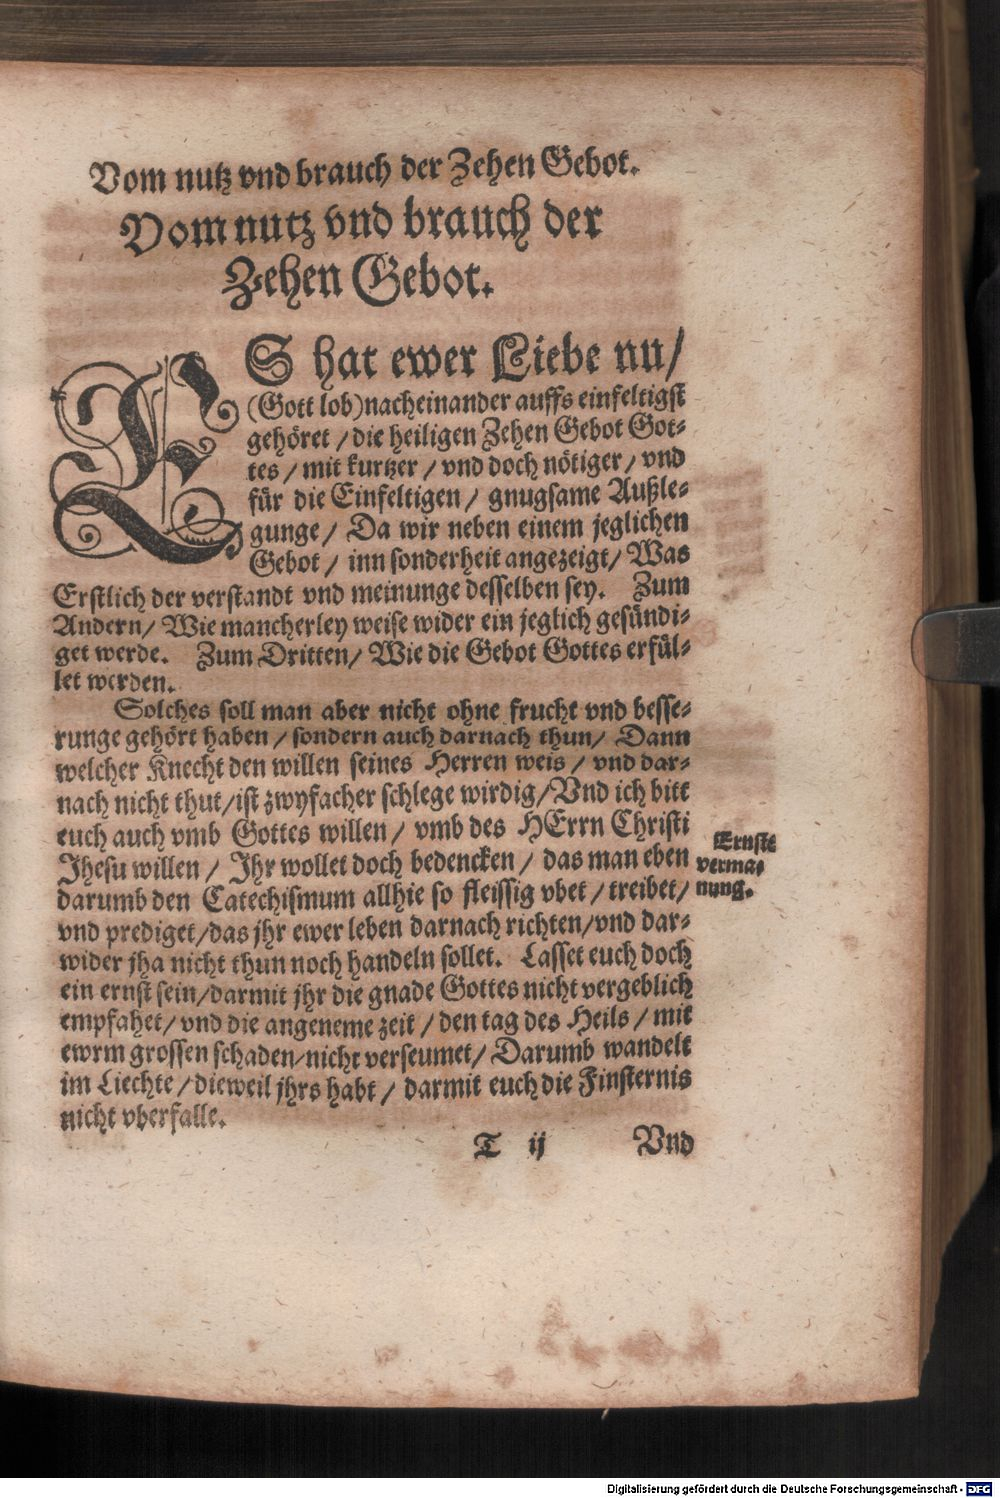 Vom nutz vnd brauch der Zehen Gebot.
Vom nutz vnd brauch der
Zehen Gebot.
ES hat ewer Liebe nu/
(Gott lob) nacheinander auffs einfeltigst
gehöret / die heiligen Zehen Gebot Got-
tes / mit kurtzer / vnd doch nötiger / vnd
für die Einfeltigen / gnugsame Außle-
gunge / Da wir neben einem jeglichen
Gebot / inn sonderheit angezeigt / Was
Erstlich der verstandt vnd meinunge desselben sey. Zum
Andern / Wie mancherley weise wider ein jeglich gesündi-
get werde. Zum Dritten / Wie die Gebot Gottes erfül-
let werden.
Solches soll man aber nicht ohne frucht vnd besse-
runge gehört haben / sondern auch darnach thun / Dann
welcher Knecht den willen seines Herren weis / vnd dar-
nach nicht thut / ist zwyfacher schlege wirdig / Vnd ich bitt
euch auch vmb Gottes willen / vmb des HErrn Christi
Jhesu willen / Jhr wollet doch bedencken / das man eben
darumb den Catechismum allhie so fleissig vbet / treibet /
vnd prediget / das jhr ewer leben darnach richten / vnd dar-
wider jha nicht thun noch handeln sollet. Lasset euch doch
ein ernst sein / darmit jhr die gnade Gottes nicht vergeblich
empfahet / vnd die angeneme zeit / den tag des Heils / mit
ewrm grossen schaden / nicht verseumet / Darumb wandelt
im Liechte / dieweil jhrs habt / darmit euch die Finsternis
nicht vberfalle.
Ernste
verma-
nung.
T ij Vnd
Digitalisierung gefördert durch die Deutsche Forschungsgemeinschaft - DFG